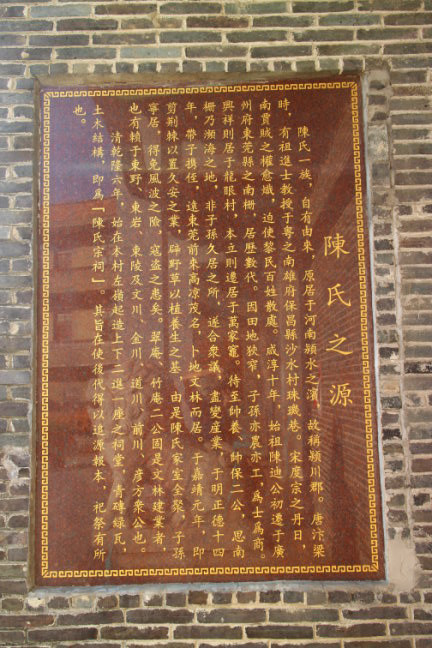 陳氏之源
陳氏一族，自有由來，原居于河南潁水之濱，故稱潁川郡。唐汴梁
時，有祖進士教授于粵之南雄府保昌縣沙水村珠璣巷。宋度宗之丹日，
南賈賊之權愈熾，迫使黎民百姓散處。咸淳十年，始祖陳迪公初遷于廣
州府東莞縣之南柵，居歷數代。因田地狹窄，子孫亦農亦工，爲士爲商。
興祥則居于龍眼村，本立則遷居于萬家竈。待至帥養、帥保二公，思南
柵乃瀕海之地，非子孫久居之所，遂合衆議，盡變産業，于明正德十四
年，帶子携侄，遠東莞前來高凉茂名，卜地文林而居。于嘉靖元年，即
剪荆棘以置久安之業，辟野草以植養生之基。由是陳氏家室全聚，子孫
寧居，得免風波之險，寇盗之患矣。翠庵、竹庵二公固是文林建業者，
也有賴于東野、東岩、東陵及文川、金川、道川、前川、彦方衆公也。
清乾隆六年，始在本村左嶺起造上下二進一座之祠堂，青磚緑瓦，
土木結構，即爲「陳氏宗祠」。其旨在使後代得以追源報本，祀祭有所
也。